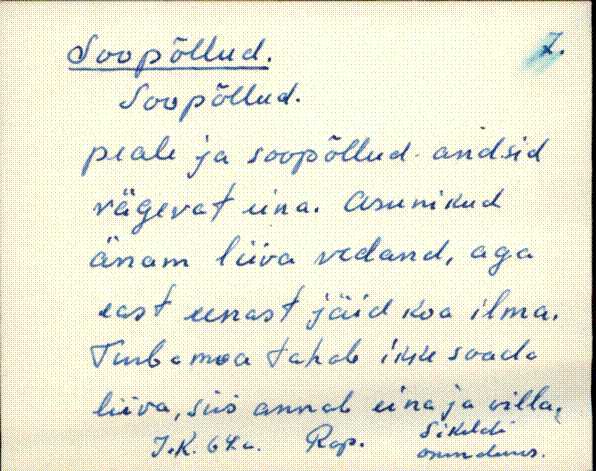 Soopõllud. 7.
Soopõllud.
peale ja soopõllud andsid
vägevat eina. Asunikud
änam liiva vedand, aga
east eenast jäid koa ilma.
Turbamoa tahab ikke soada
liiva, siis annab eina ja villa.
J.K. 64 a. Rap. Sikeldi
asundus.